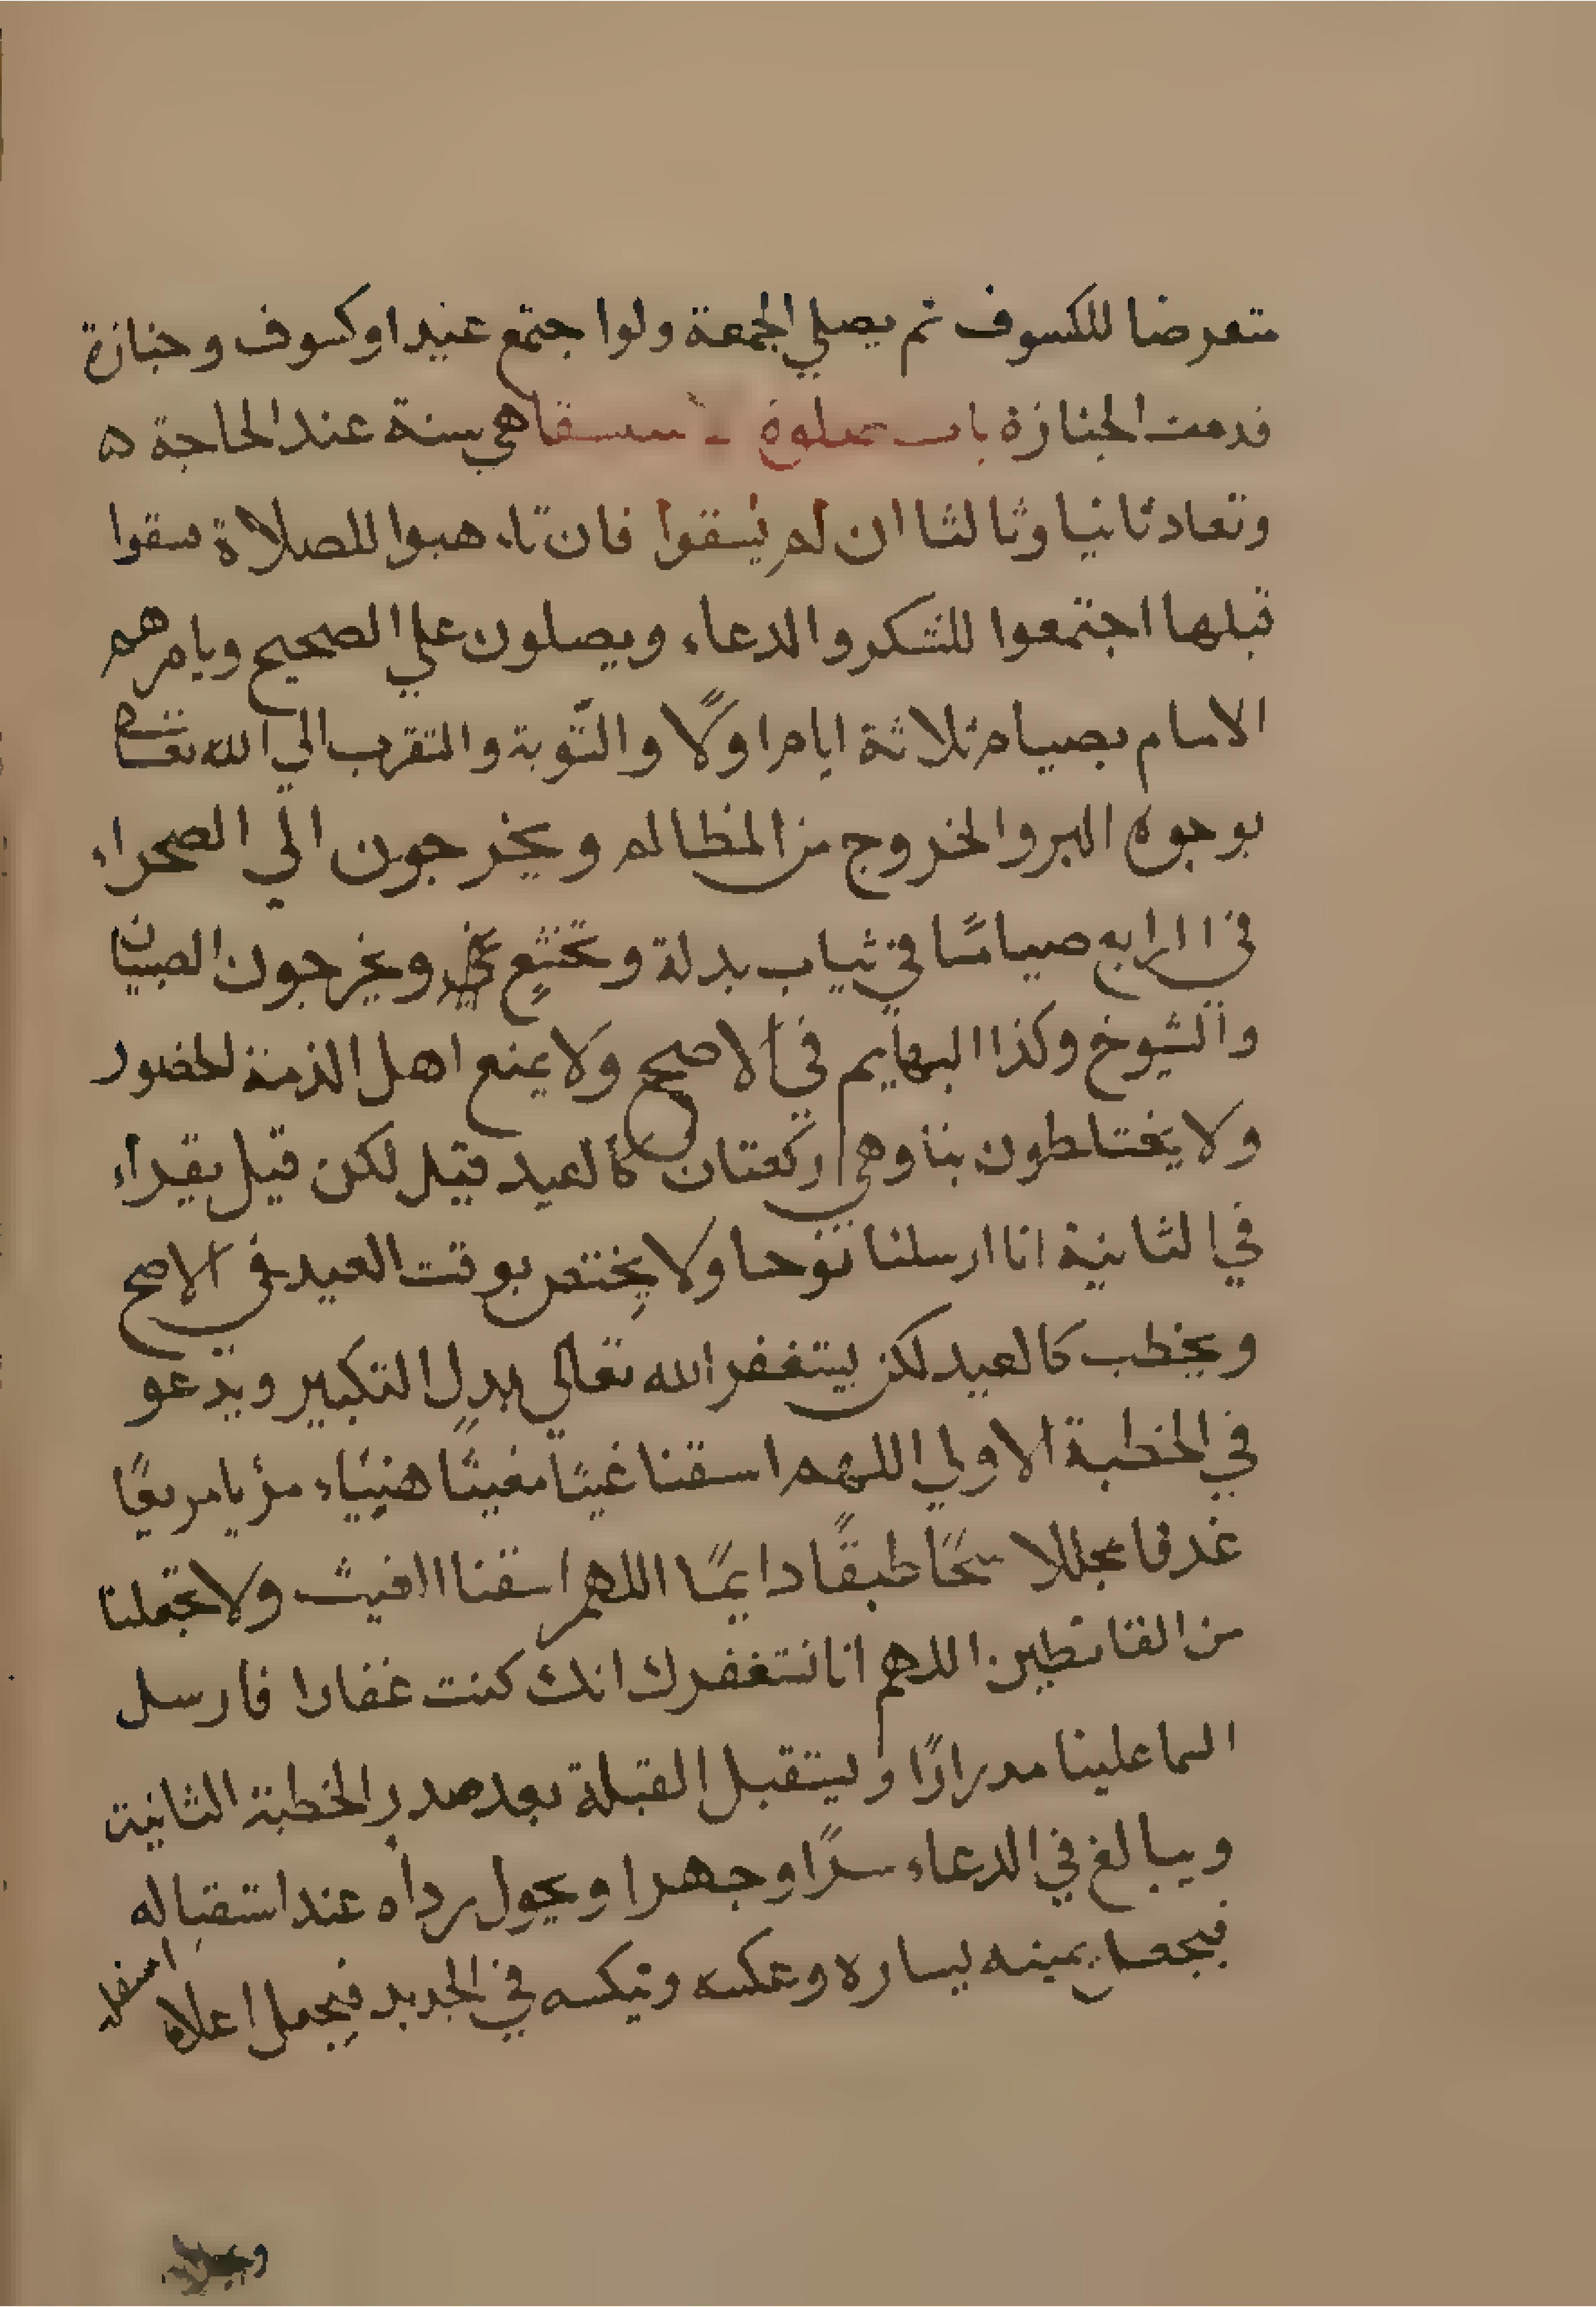 متعرضا للكسوف ثم يصلي الجمعة ولوا جتمع عيد اوكسوف وجنازة
قدمت الجنازة باب صلوة الاستسقا هي سنة عند الحاجة ه
وتعاد ثانيا وثالثا ان لم يسقوا فان تاءهبوا للصلاة فسقوا
قبلها اجتمعوا للشكر والدعاء ويصلون علي الصحيح ويامرهم
الامام بصيام ثلاثة ايام اولا والتوبة والتقرب الي الله تعا
بوجوه البر والخروج من المظالم ويخرجون الي الصحراء
في الرابع صياما في ثياب بدلة وتخشع ويخرجون الصبيان
والشيوخ وكذا البهايم في الاصح ولا يمنع اهل الذمة لحضور
ولا يختلطون بنا وهي ركعتان كالعيد قيل لكن قيل يقراء
في الثانية انا ارسلنا نوحا ولا يختص بوقت العيد في الاصح
ويخطب كالعيد لكن يستغفر الله تعالي بدل التكبير ويدعو
في الخطبة الاولي اللهم اسقنا غيثا مغيثا هنيئاء مرئيا مريعًا
غدقا مجللا سحًا طبقًا دايمًا اللهم اسقنا الغيث ولا تجعلنا
من القانطين اللهم انا نستغفرك انك كنت غفارا فارسل
السما علينا مدرارًا ويستقبل القبلة بعد صدر الخطبة الثانية
ويبالغ في الدعاء سرًا وجهرا ويحول رداه عند استقباله
فيجعل يمينه يساره وعكسه وينكسه في الجديد فيجعل اعلاه اسفله